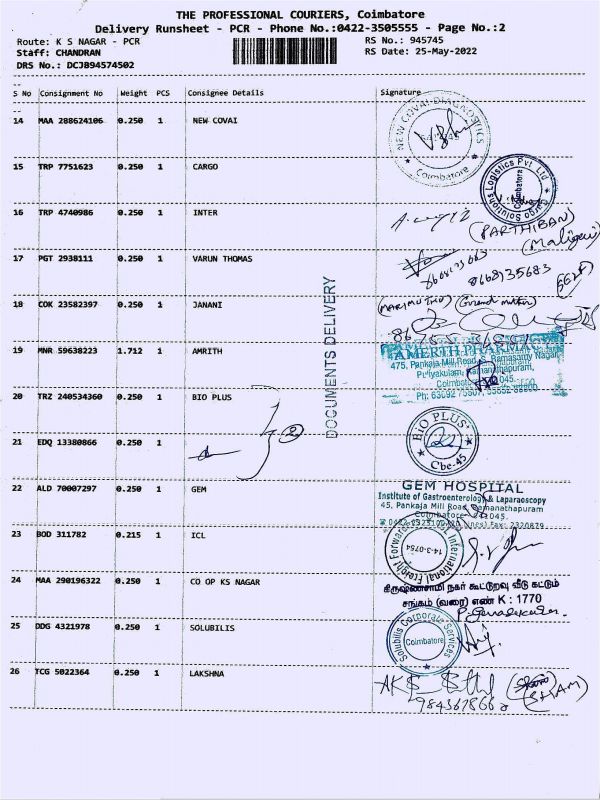 THE PROFESSIONAL COURIERS, Coimbatore
Delivery Runsheet - PCR - Phone No.:0422-3505555 - Page No.:2
Route: K S NAGAR - PCR RS No.: 945745
Staff: CHANDRAN RS Date: 25-May-2022
DRS No.: DCJB94574502
S No Consignment No Weight PCS Consignee Details Signature
14 MAA 288624106 0.250 1 NEW COVAI
NEW COVAI DIAGNOSTICS
Coimbatore
15 TRP 7751623 0.250 1 CARGO
Cargo Solutions Logistics Pvt Ltd
Coimbatore
16 TRP 4740986 0.250 1 INTER
(PARTHIBAN)
17 PGT 2938111 0.250 1 VARUN THOMAS
8668135683
DOCUMENTS DELIVERY
18 COK 23582397 0.250 1 JANANI
19 MNR 59638223 1.712 1 AMRITH
AMERTH PHARMACY
475, Pankaja Mill Road, S. Ramasamy Nagar,
Puliyakulam, Ramanathapuram,
20 TRZ 240534360 0.250 1 BIO PLUS
2
BIO PLUS
Cbe-45
21 EDQ 13380866 0.250 1
22 ALD 70007297 0.250 1 GEM
GEM HOSPITAL
Institute of Gastroenterology & Laparoscopy
45, Pankaja Mill Road, Ramanathapuram
Coimbatore
23 BOD 311782 0.215 1 ICL
International Freight Forwarders
14-3-0754
24 MAA 290196322 0.250 1 CO OP KS NAGAR
கிருஷ்ணசாமி நகர் கூட்டுறவு வீடு கட்டும்
சங்கம் (வரை) எண் K : 1770
25 DDG 4321978 0.250 1 SOLUBILIS
Solubilis Corporate Services
Coimbatore
26 TCG 5022364 0.250 1 LAKSHNA
(SHAM)